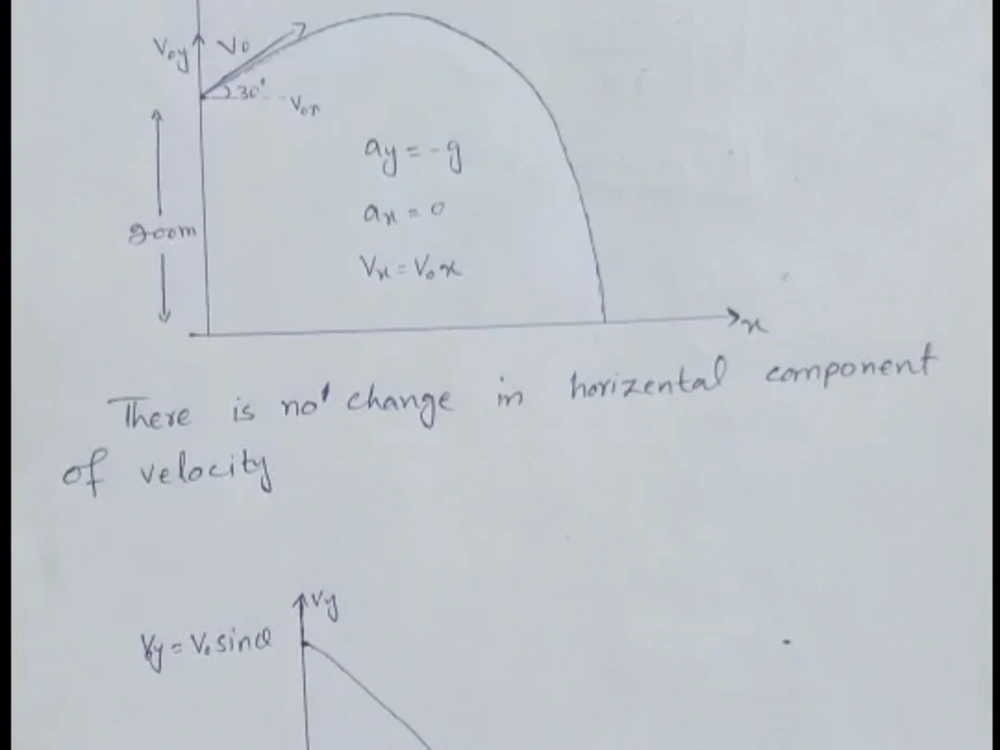 Voy
Vo
30°
Vox
ay = -g
ax = 0
200m
Vx = Vox
x
There is no change in horizental component
of velocity
Vy
Vy = Vo sinθ